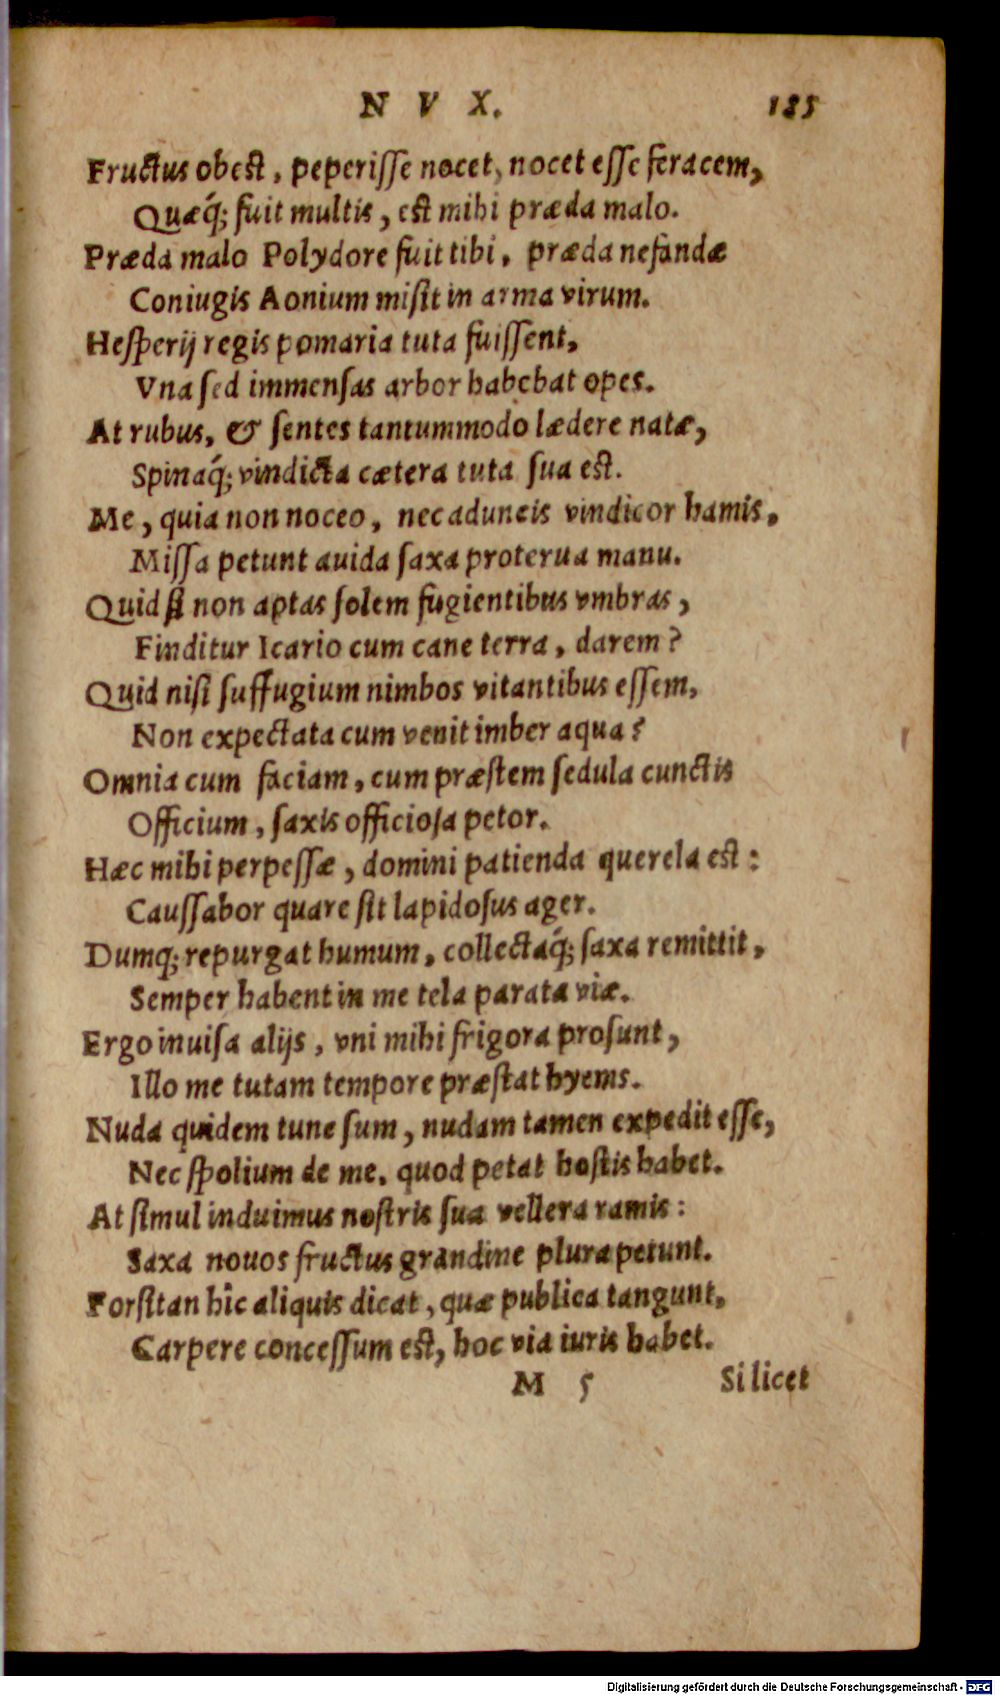 N V X. 185
Fructus obest, peperisse nocet, nocet esse feracem,
Quæq́; fuit multis, est mihi præda malo.
Præda malo Polydore fuit tibi, præda nefandæ
Coniugis Aonium misit in arma virum.
Hesperij regis pomaria tuta fuissent,
Vna sed immensas arbor habebat opes.
At rubus, & sentes tantummodo lædere natæ,
Spinaq́; vindicta cætera tuta sua est.
Me, quia non noceo, nec aduncis vindicor hamis,
Missa petunt auida saxa proterua manu.
Quid si non aptas solem fugientibus vmbras,
Finditur Icario cum cane terra, darem?
Quid nisi suffugium nimbos vitantibus essem,
Non expectata cum venit imber aqua?
Omnia cum faciam, cum præstem sedula cunctis
Officium, saxis officiosa petor.
Hæc mihi perpessæ, domini patienda querela est:
Caussabor quare sit lapidosus ager.
Dumq; repurgat humum, collectaq́; saxa remittit,
Semper habent in me tela parata viæ.
Ergo inuisa alijs, vni mihi frigora prosunt,
Illo me tutam tempore præstat hyems.
Nuda quidem tunc sum, nudam tamen expedit esse,
Nec spolium de me, quod petat hostis habet.
At simul induimus nostris sua vellera ramis:
Saxa nouos fructus grandine plura petunt.
Forsitan hîc aliquis dicat, quæ publica tangunt,
Carpere concessum est, hoc via iuris habet.
M 5 Si licet
Digitalisierung gefördert durch die Deutsche Forschungsgemeinschaft - DFG